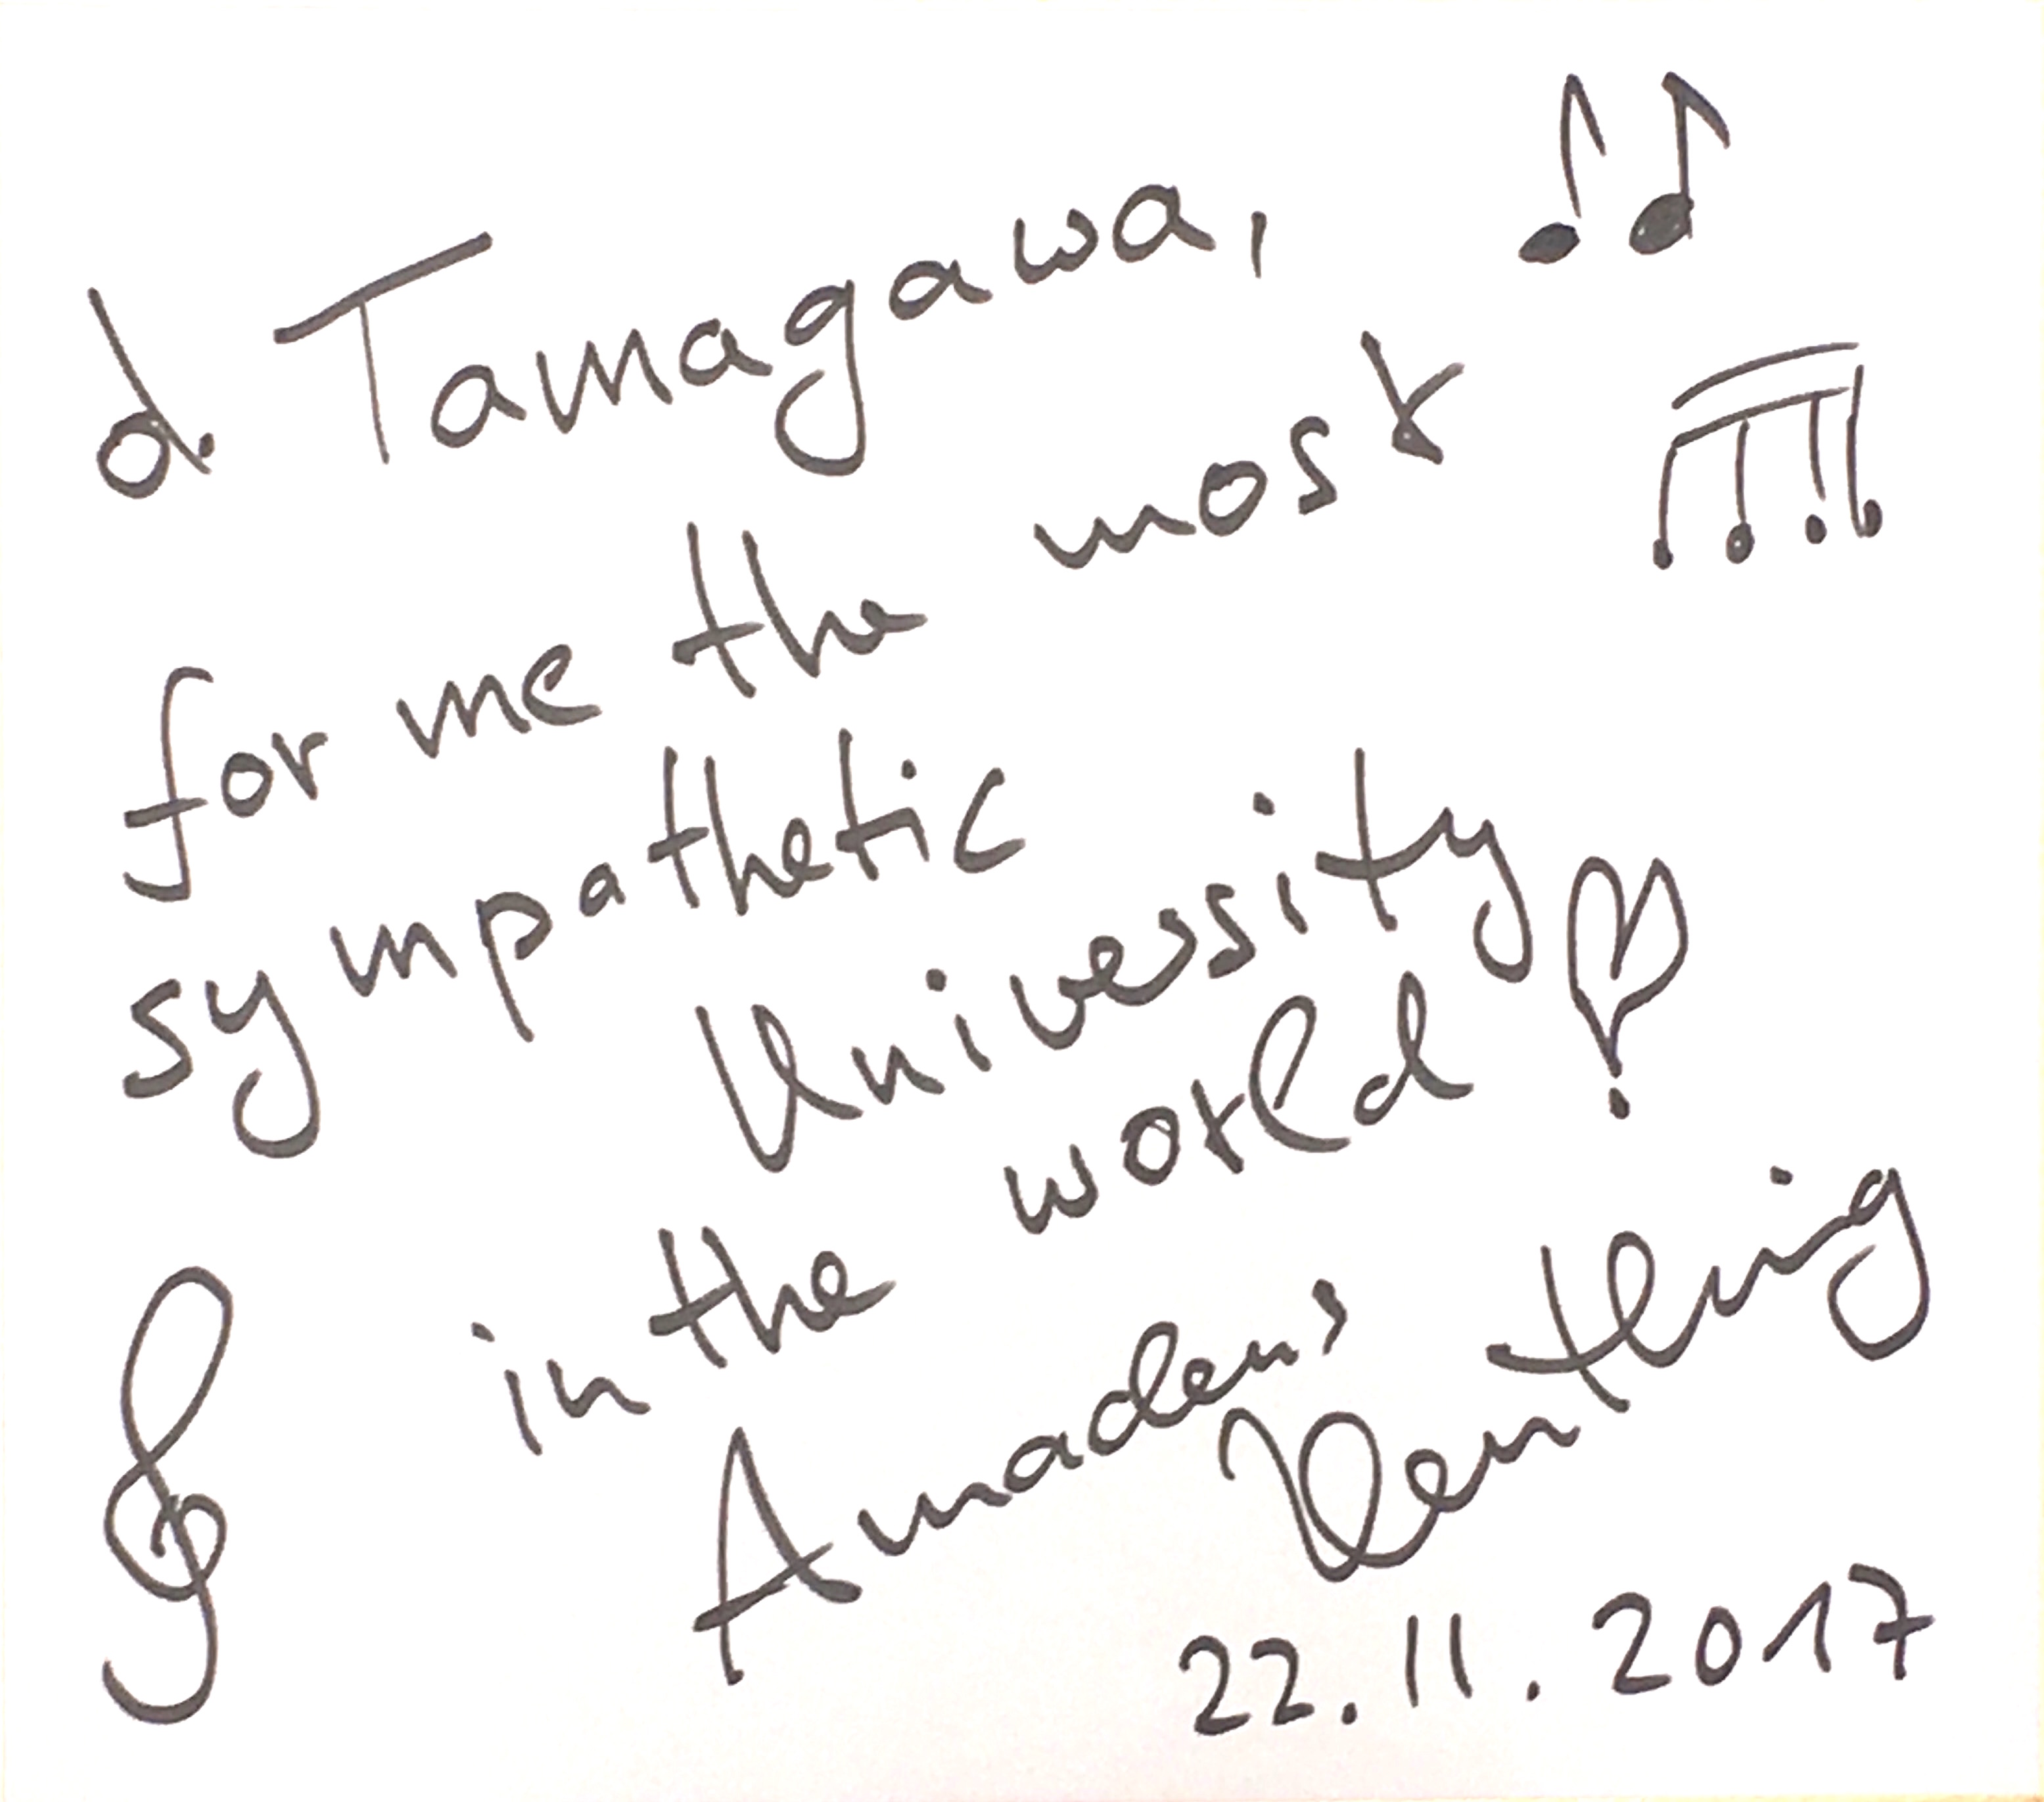 d. Tamagawa,
for me the most
sympathetic
University
in the world
Amadeus
22.11.2017